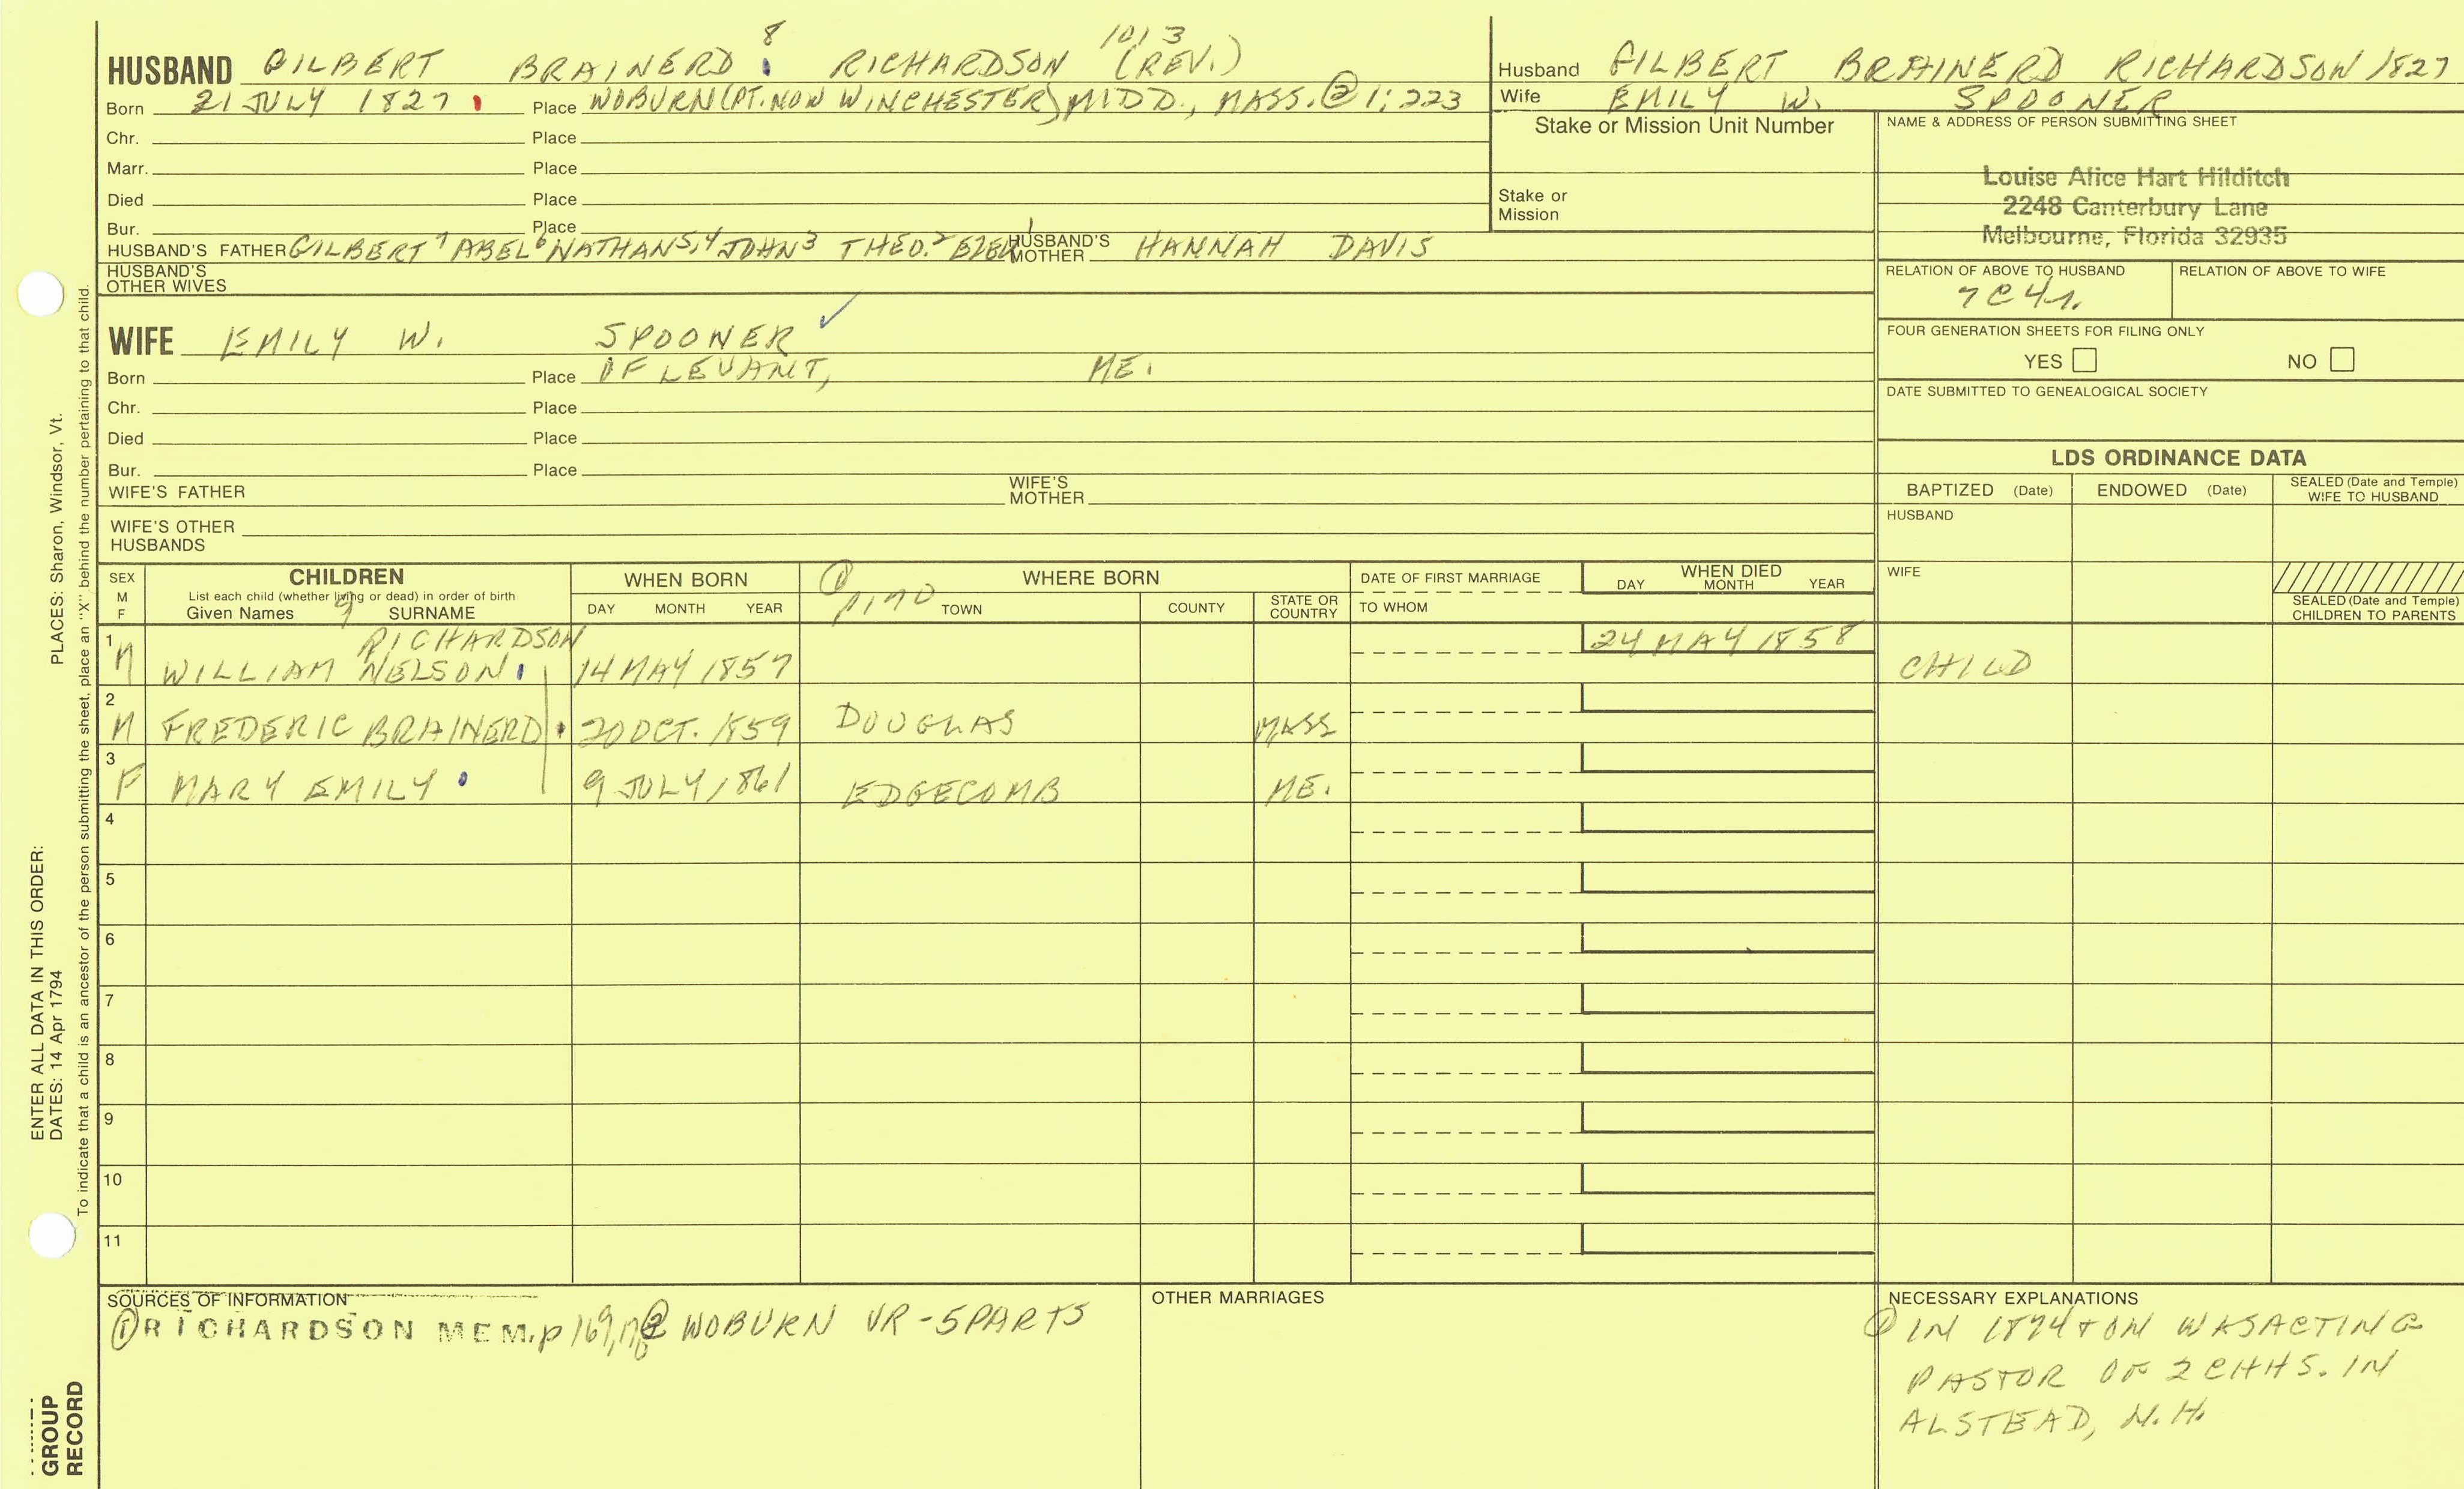 8 1013
HUSBAND GILBERT BRAINERD RICHARDSON (REV.)
Born 21 JULY 1827 Place WOBURN (PT. NOW WINCHESTER) MIDD., MASS. ② 1:223
Chr. Place
Marr. Place
Died Place
Bur. Place
HUSBAND'S FATHER GILBERT 7 ABEL 6 NATHAN 5,4 JOHN 3 THEO. 2 EZEK 1 HUSBAND'S MOTHER HANNAH DAVIS
HUSBAND'S
OTHER WIVES
Husband GILBERT BRAINERD RICHARDSON 1827
Wife EMILY W. SPOONER
Stake or Mission Unit Number
Stake or
Mission
NAME & ADDRESS OF PERSON SUBMITTING SHEET
Louise Alice Hart Hilditch
2248 Canterbury Lane
Melbourne, Florida 32935
RELATION OF ABOVE TO HUSBAND RELATION OF ABOVE TO WIFE
7C4r.
FOUR GENERATION SHEETS FOR FILING ONLY
YES NO
DATE SUBMITTED TO GENEALOGICAL SOCIETY
WIFE EMILY W. SPOONER
Born Place OF LEVANT, ME.
Chr. Place
Died Place
Bur. Place
WIFE'S FATHER WIFE'S MOTHER
WIFE'S OTHER
HUSBANDS
LDS ORDINANCE DATA
BAPTIZED (Date) ENDOWED (Date) SEALED (Date and Temple) WIFE TO HUSBAND
HUSBAND
WIFE
SEALED (Date and Temple)
CHILDREN TO PARENTS
SEX M F CHILDREN WHEN BORN ① WHERE BORN DATE OF FIRST MARRIAGE WHEN DIED
List each child (whether living or dead) in order of birth DAY MONTH YEAR
Given Names 9 SURNAME DAY MONTH YEAR p170 TOWN COUNTY STATE OR COUNTRY TO WHOM
1 RICHARDSON 24 MAY 1858
M WILLIAM NELSON 14 MAY 1857 CHILD
2
M FREDERIC BRAINERD 20 OCT. 1859 DOUGLAS MASS
3
F MARY EMILY 9 JULY 1861 EDGECOMB ME.
4
5
6
7
8
9
10
11
SOURCES OF INFORMATION
① RICHARDSON MEM. p 169, ② WOBURN VR - 5 PARTS
OTHER MARRIAGES
NECESSARY EXPLANATIONS
① IN 1874 + ON WAS ACTING
PASTOR OF 2 CHHS. IN
ALSTEAD, N.H.
ENTER ALL DATA IN THIS ORDER:
DATES: 14 Apr 1794 PLACES: Sharon, Windsor, Vt.
To indicate that a child is an ancestor of the person submitting the sheet, place an "X" behind the number pertaining to that child.
GROUP
RECORD